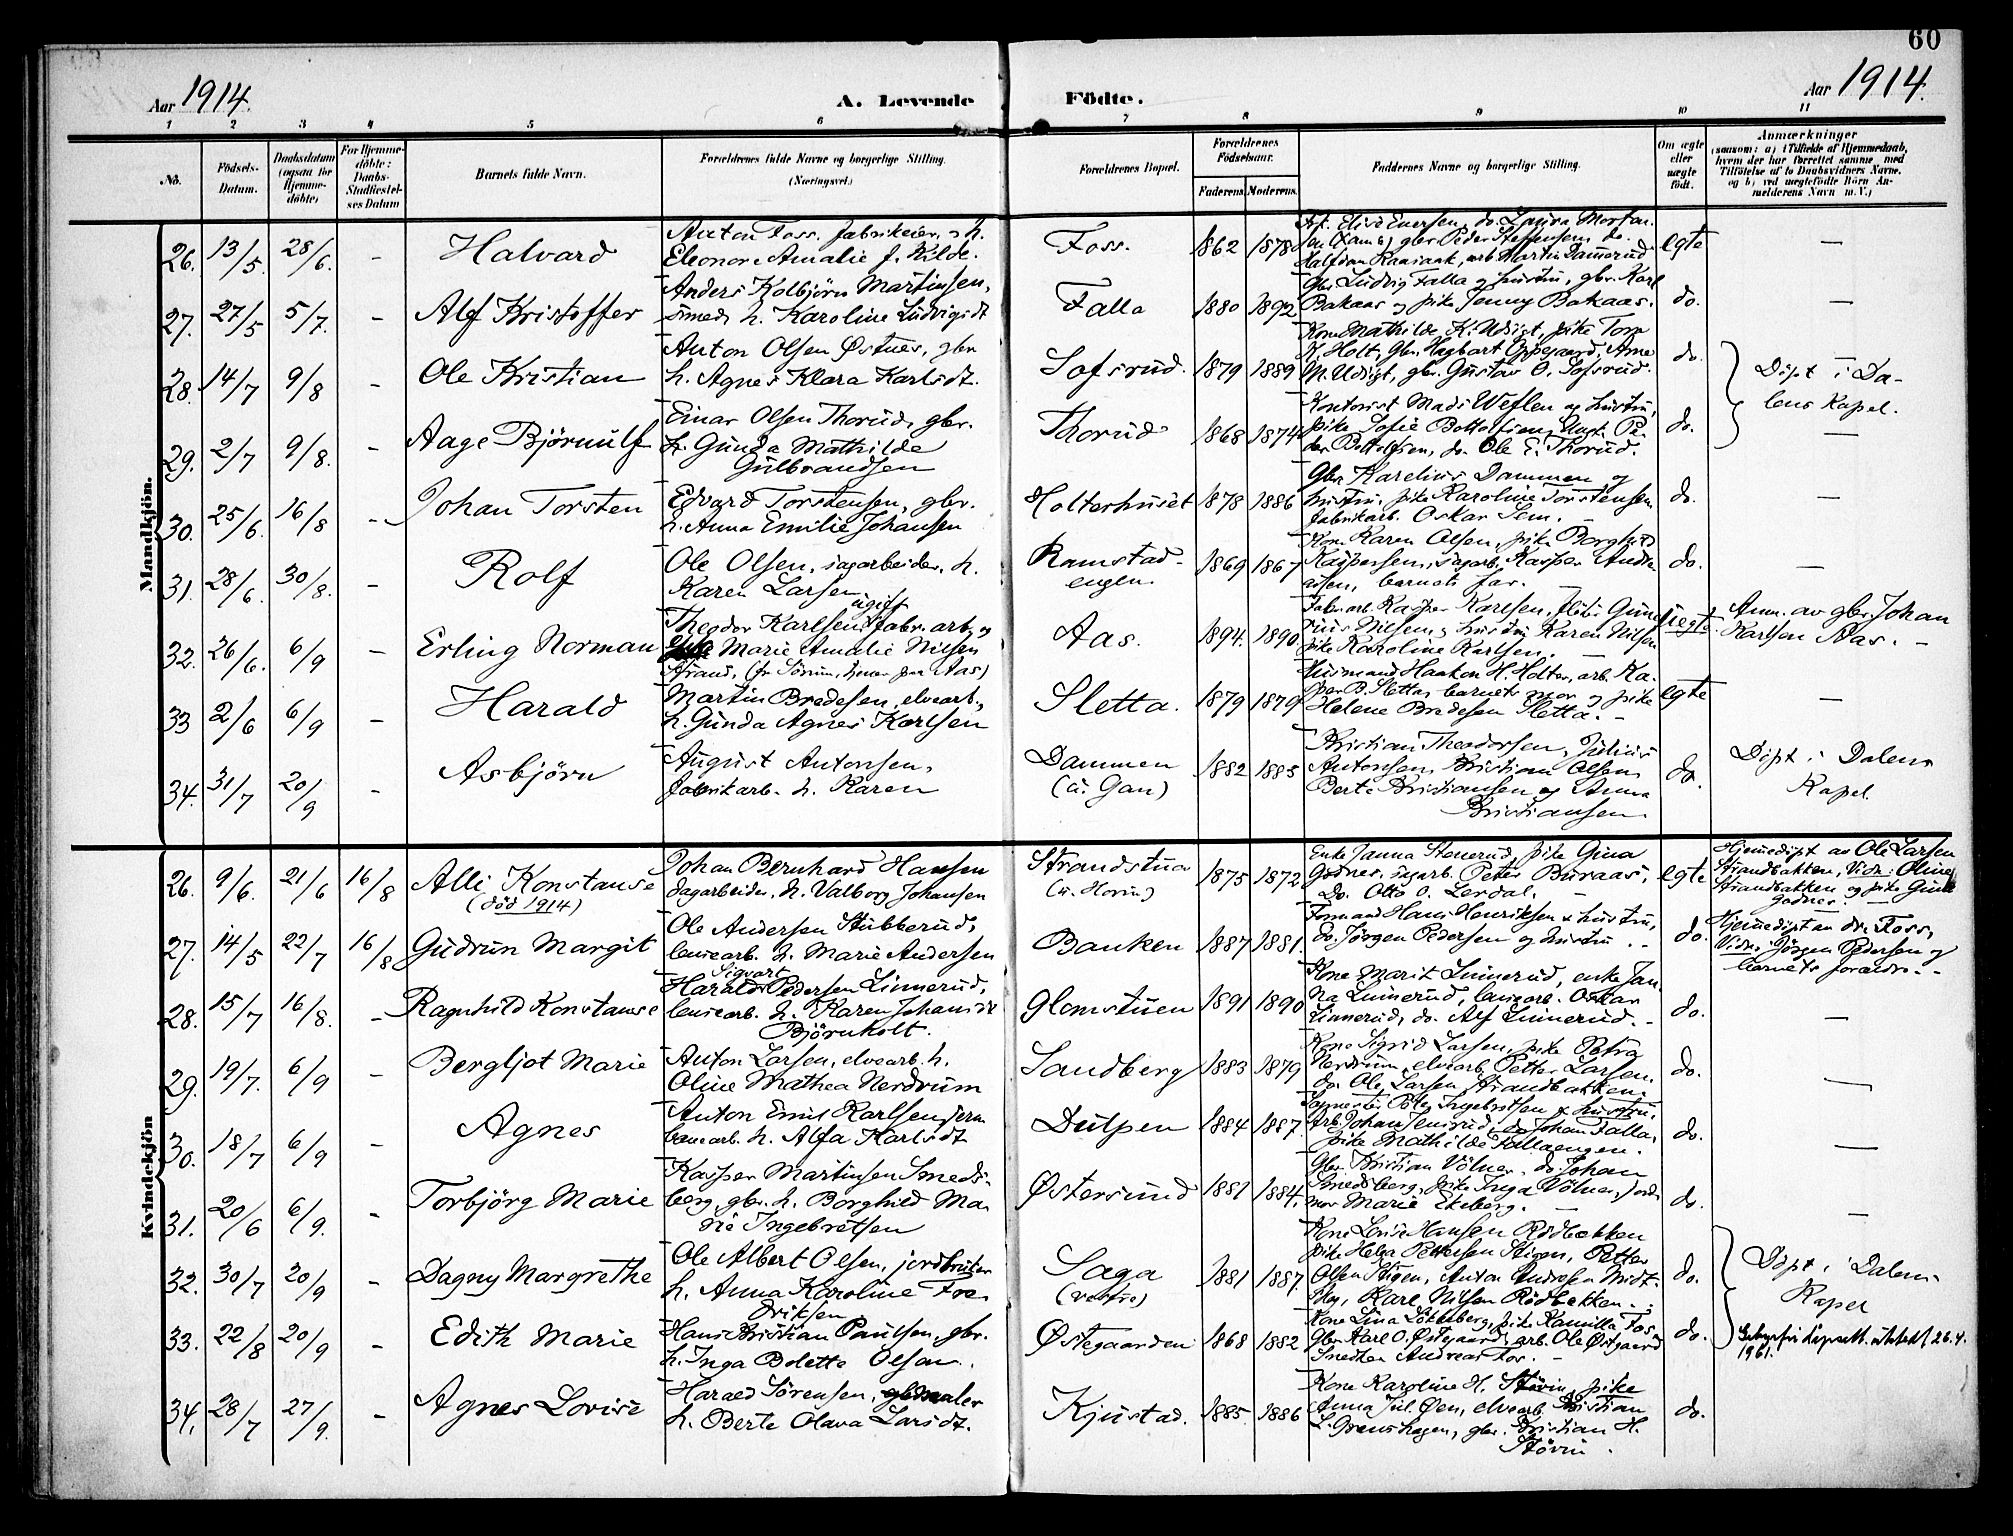 60
Aar 1914.
A. Levende Födte.
Aar 1914.
1 2 3 4 5 6 7 8 9 10 11
No.
Födsels-
Datum.
Daabsdatum
(ogsaa for
Hjemme-
döbte)
For Hjemme-
döbte:
Daabs-
Stadfæstel-
ses Datum
Barnets fulde Navn.
Forældrenes fulde Navne og borgerlige Stilling.
(Næringsvei.)
Forældrenes Bopæl.
Forældrenes
Födselsaar.
Faderens. Moderens.
Faddernes Navne og borgerlige Stilling.
Om ægte
eller
uægte
födt.
Anmærkninger
(saasom: a) i Tilfælde af Hjemmedaab,
hvem der har forrettet samme, med
Tilföielse af to Daabsvidners Navne.
og b) ved uægtefödte Börn An-
melderens Navn m. V.)
Mandkjön.
26. 13/5 28/6. - Halvard
Anton Foss, fabrikeier, o h.
Eleonore Amalie f. Kilde.
Foss. 1862 1878
gbr Peder Steffensen do.
egte —
27. 27/5 5/7. - Alf Kristoffer
Anders Kolbjörn Martinsen,
smed, h. Karoline Ludvigsdt
Falla 1880 1892
Gbr Ludvig Falla og hustru, gbr. Karl
Bakaas og pike Jenny Bakaas.
do. —
28. 14/7 9/8 - Ole Kristian
Anton Olsen Østnes, gbr
h. Agnes Klara Karlsdt.
Sofsrud. 1879 1889
Kone Mathilde K. Udsigt, pike Tora
K. Holt, gbr. Hagbart Oppegaard, Arne
M. Udsigt, gbr. Gustav O. Sofsrud.
do.
Döpt i Da-
lens Kapel.
29. 2/7 9/8. - Aage Björnulf
Einar Olsen Thorud, gbr.
h. Gunda Mathilde
Gulbrandsen
Thorud 1868 1874
Kontorist Mads Weflen og hustru,
pike Sofie Bottolfsen, Ungk. Pe-
der Bottolfsen, do. Ole E. Thorud.
do. —
30. 25/6. 16/8 - Johan Torsten
Edvard Torstensen, gbr.
h. Anna Emilie Johansen
Holterhuset 1878 1886
Gbr Karelius Dammen og
hustru, pike Karoline Torstensen
fabrikarb. Oskar Sem. -
do. —
31. 28/6. 30/8. - Rolf
Ole Olsen, sagarbeider, h.
Karen Larsen
Ramstad-
engen. 1869 1867
Kone Karen Olsen, pike Borghild
Kaspersen, sagarb. Kasper Andre-
assen, barnets far. —
do. —
32. 26/6. 6/9 - Erling Norman
ugift
Theodor Karlsen, fabr. arb. og
Marie Amalie Nilsen
Strand, (fr Sörum, hever paa Aas)
Aas. 1894. 1890
Fabr. arb. Kasper Karlsen,
Nilsen, hustru Karen Nilsen
pike Karoline Karlsen. —
uegte.
Anm. av gbr. Johan
Karlsen Aas. -
33 2/6 6/9 - Harald
Martin Bredesen, elvearb.,
h. Gunda Agnes Karlsen
Sletta. 1879 1879
Husmand Haakon H. Holter, arb. Ka-
sper B. Sletta, barnets mor og pike
Helene Bredesen Sletta. -
egte —
34. 31/7 20/9 - Asbjörn
August Antonsen,
fabrikarb. h. Karen
Dammen
(i. Gan) 1882 1885
Kristian Theodorsen, Julius
Antonsen, Kristian Olsen,
Berte Kristiansen og Anna
Kristiansen.
do.
Döpt i Dalens
Kapel.
Kvindekjön
26. 9/6. 21/6 16/8 Alli Konstanse
(död 1914)
Johan Bernhard Hansen
dagarbeider, h. Valborg Johansen
Strandstua
1875 1872
Enke Janna Stenerud, pike Gina
Godnes, sagarb. Peter Buraas,
Do. Otto O. Lerdal. -
egte
Hjemmedöpt av Ole Larsen
Strandbakken, Vidn: Oline
Strandbakken og pike Gina
Godnes. —
27. 14/5 22/7 16/8 Gudrun Margit
Ole Andersen Stubberud,
lensearb. h. Marie Andersen
Banken 1887 1881.
Formand Hans Henriksen & hustru,
Do. Jörgen Pedersen og hustru. -
do.
Hjemmedöpt av dr. Foss,
Vidn: Jörgen Pedersen og
barnets forældre. -
28. 15/7 16/8. - Ragnhild Konstanse
Sigvart
Harald Pedersen Linnerud,
lensearb. h. Karen Johansdt
Björnholt.
Glomstuen 1891 1890
Kone Marit Linnerud, enke Jan-
na Linnerud, lensearb. Oskar
Linnerud, do. Alf Linnerud. -
do. —
29. 19/7. 6/9 - Bergljot Marie
Anton Larsen, elvearb. h.
Oline Mathea Nerdrum
Sandberg 1883 1879
Kone Sigrid Larsen, pike Petra
Nerdrum, elvearb. Petter Larsen,
do. Ole Larsen Strandbakken.
do. —
30. 18/7 6/9 - Agnes
Anton Emil Karlsen, jern-
banearb. h. Alfa Karlsdt
Dulpen 1884 1887.
Ingebretsen & hustru,
Johan Falla,
pike Mathilde Fallaengen.
do. —
31. 20/6 6/9. - Torbjörg Marie
Kasper Martinsen Smeds-
berg, gbr. h. Borghild Ma-
rie Ingebretsen
Østersund 1881 1884.
Gbr. Kristian Völner, do Johan
Smedsberg, pike Inga Völner, jord-
mor Marie Ekeberg. —
do. —
32. 30/7 20/9 - Dagny Margrethe
Ole Albert Olsen, jordbruker
h. Anna Karoline Fre-
driksen
Saga
1881 1887.
Kone Lovise Hansen Rödbækken
pike Helga Pettersen Stigen, Petter
Olsen Stigen, Anton Andersen Midt-
Karl Nilsen Rödbækken.
do.
Döpt i Dalens
Kapel
33. 22/8 20/9 - Edith Marie
Hans Kristian Paulsen, gbr.
h. Inga Bolette Olsen.
Østegaarden 1868 1882
pike Kamilla Fos,
Gbr. Karl O. Østgaard, arb. Ole Østgaard
Snedker Andreas Fos. -
do.
26.4.
1961.
34. 28/7 27/9. - Agnes Lovise
Harald Sörensen, maler
h. Berte Olava Larsdt.
Kjustad. 1885. 1886
Kone Karoline H. Störin, pike
Anna Jul. Øen, elvearb. Kristian
L. Grenshagen, gbr. Kristian H.
Störin.
do.